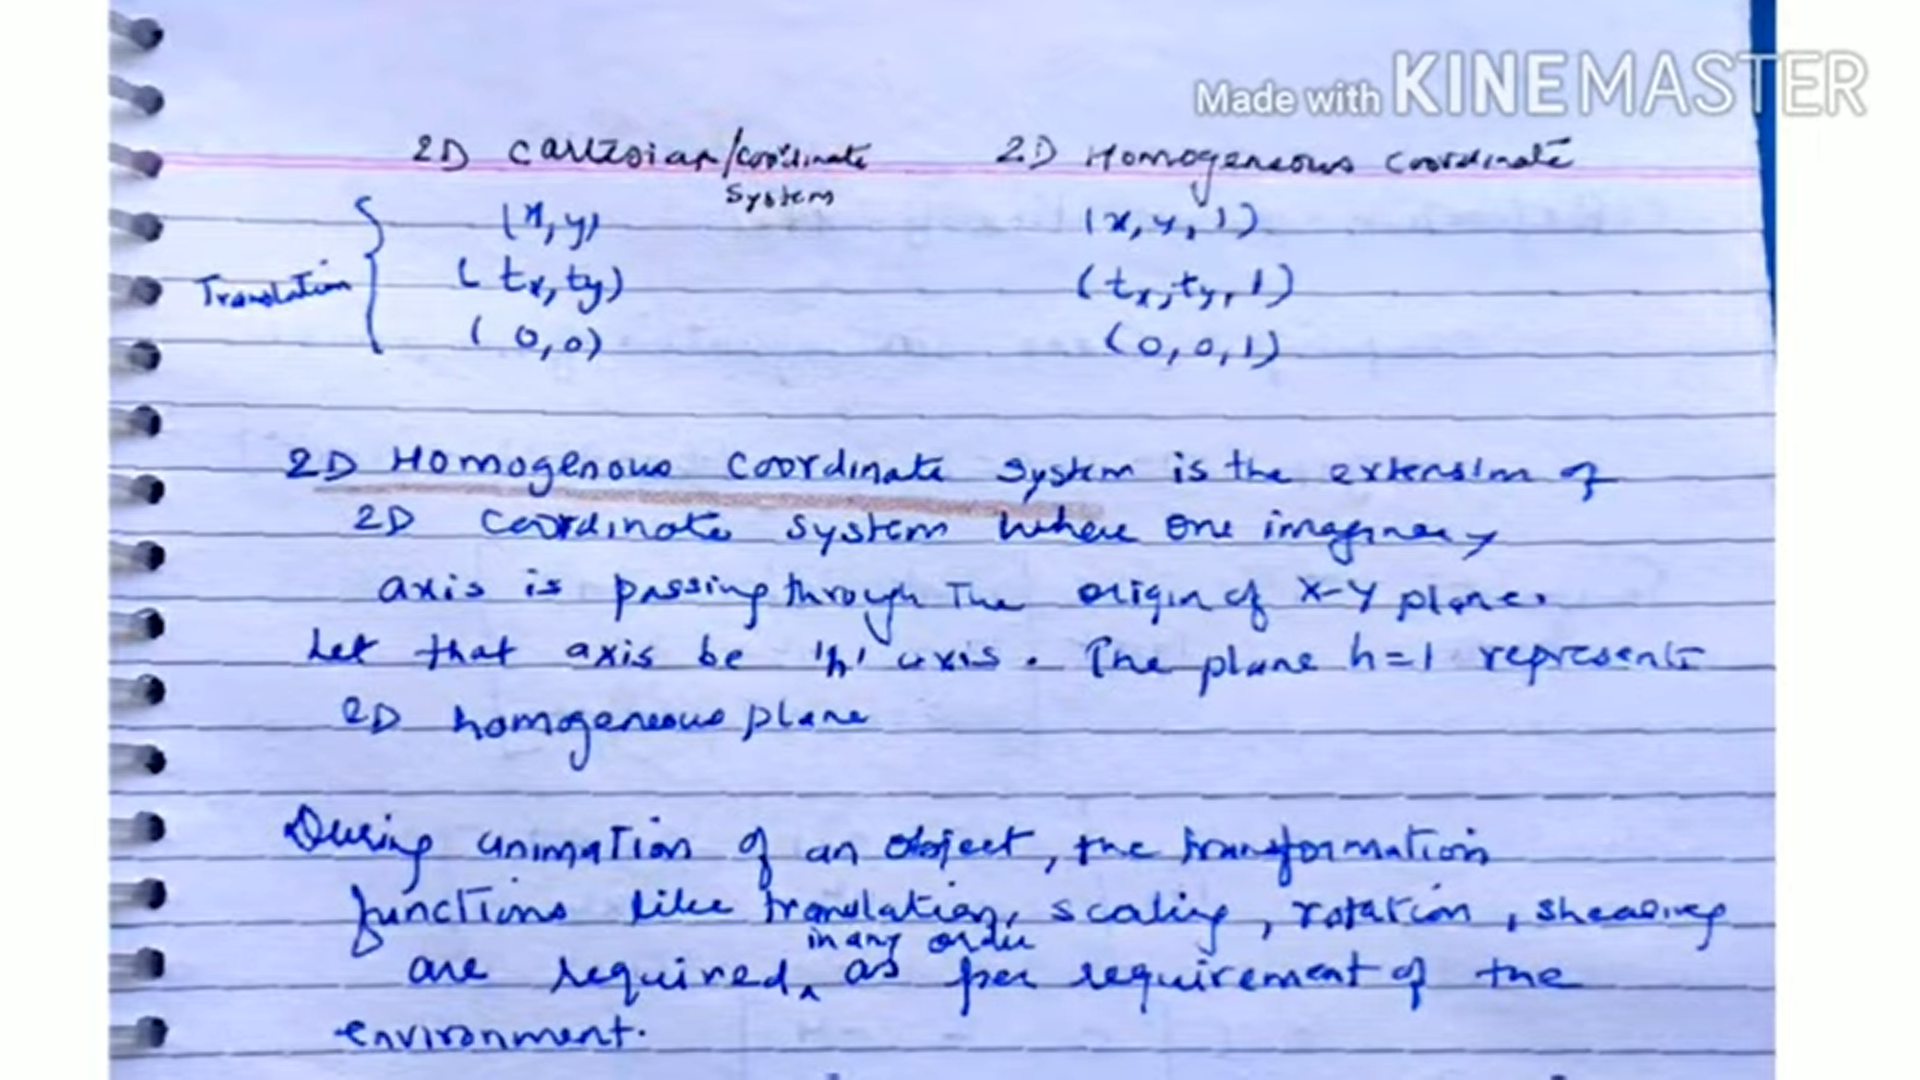 Made with KINEMASTER
2D Cartesian/coordinate 2D Homogeneous coordinate
system
(x, y) (x, y, 1)
Translation (tx, ty) (tx, ty, 1)
(0, 0) (0, 0, 1)
2D Homogenous coordinate system is the extension of
2D coordinate system where one imaginary
axis is passing through the origin of x-y plane.
Let that axis be 'h' axis. The plane h=1 represents
2D homogeneous plane
During animation of an object, the transformation
functions like translation, scaling, rotation, shearing
in any order
are required ^ as per requirement of the
environment.